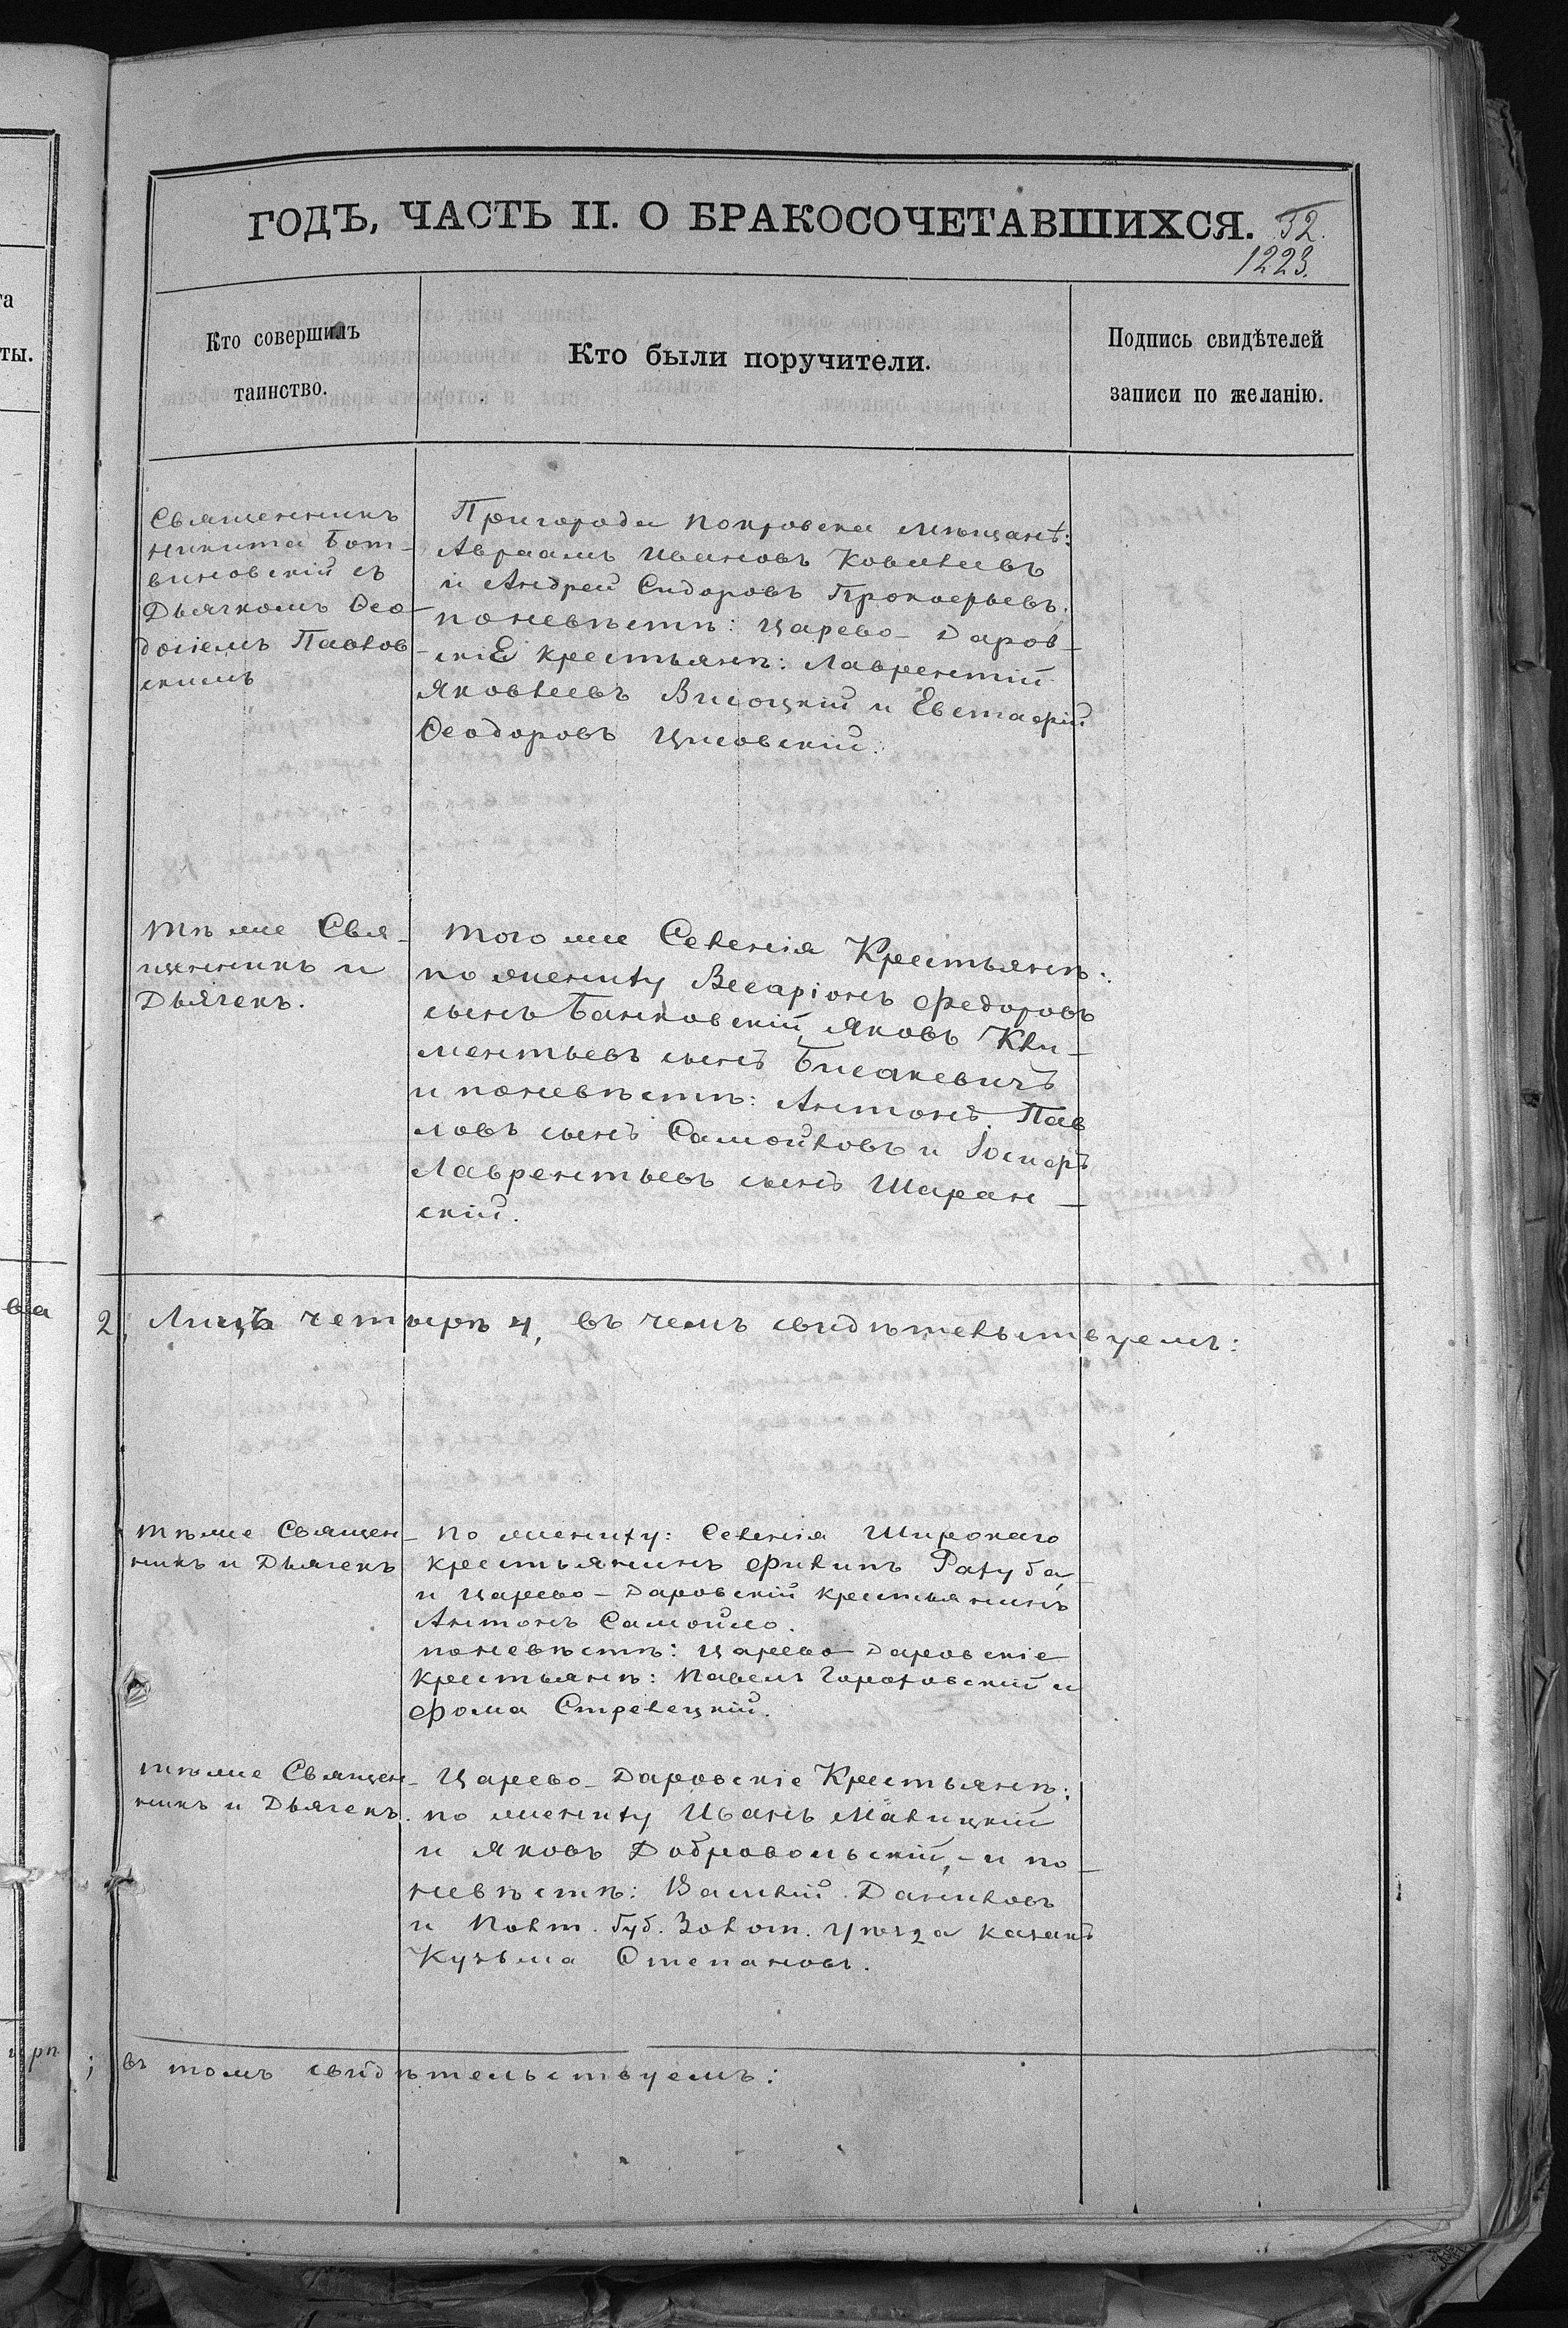 ГОДЪ, ЧАСТЬ II. О БРАКОСОЧЕТАВШИХСЯ. 52.
1223.
Кто совершилъ
таинство.
Кто были поручители.
Подпись свидѣтелей
записи по желанію.
Священникъ
Никита Бот-
виновскій съ
Дьячкомъ Ѳео-
досіемъ Павлов-
скимъ
Пригорода Покровска мѣщанѣ:
Авраамъ Ивановъ Ковалевъ
и Андрей Сидоровъ Прокофьевъ.
поневѣстѣ: Царево-Даров-
скіе крестьянѣ: Лаврентій
Яковлевъ Висоцкій и Евстафій
Ѳеодоровъ Цисовскій.
Тѣ же Свя-
щенникъ и
Дьячекъ.
Того же Селенія Крестьянѣ:
по жениху Весаріонъ Федоровъ
сынъ Банковскій, Яковъ Кли-
ментьевъ сынъ Бисакевичъ
и поневѣстѣ: Антонъ Пав
ловъ сынъ Самойловъ и Іосифъ
Лаврентьевъ сынъ Шаран-
скій.
2, Лицъ четырѣ 4, въ чемъ свидѣтельствуемъ:
Тѣже Священ-
никъ и Дьячекъ
По жениху: Селенія Широкаго
крестьянинъ Филипъ Рахуба
и Царево-Даровскій крестьянинъ
Антонъ Самойло.
поневѣстѣ: Царево-Даровскіе
крестьянѣ: Павелъ Гороховскій и
Фома Стрелецкій.
Тѣже Священ-
никъ и Дьячекъ.
Царево-Даровскіе Крестьянѣ:
по жениху Иванъ Малицкій
и Яковъ Добровольскій, - и по-
невѣстѣ: Василій Даниловъ
и Полт. Губ. Золот. уѣзда казакъ
Кузьма Степановъ.
; въ томъ свидѣтельствуемъ: